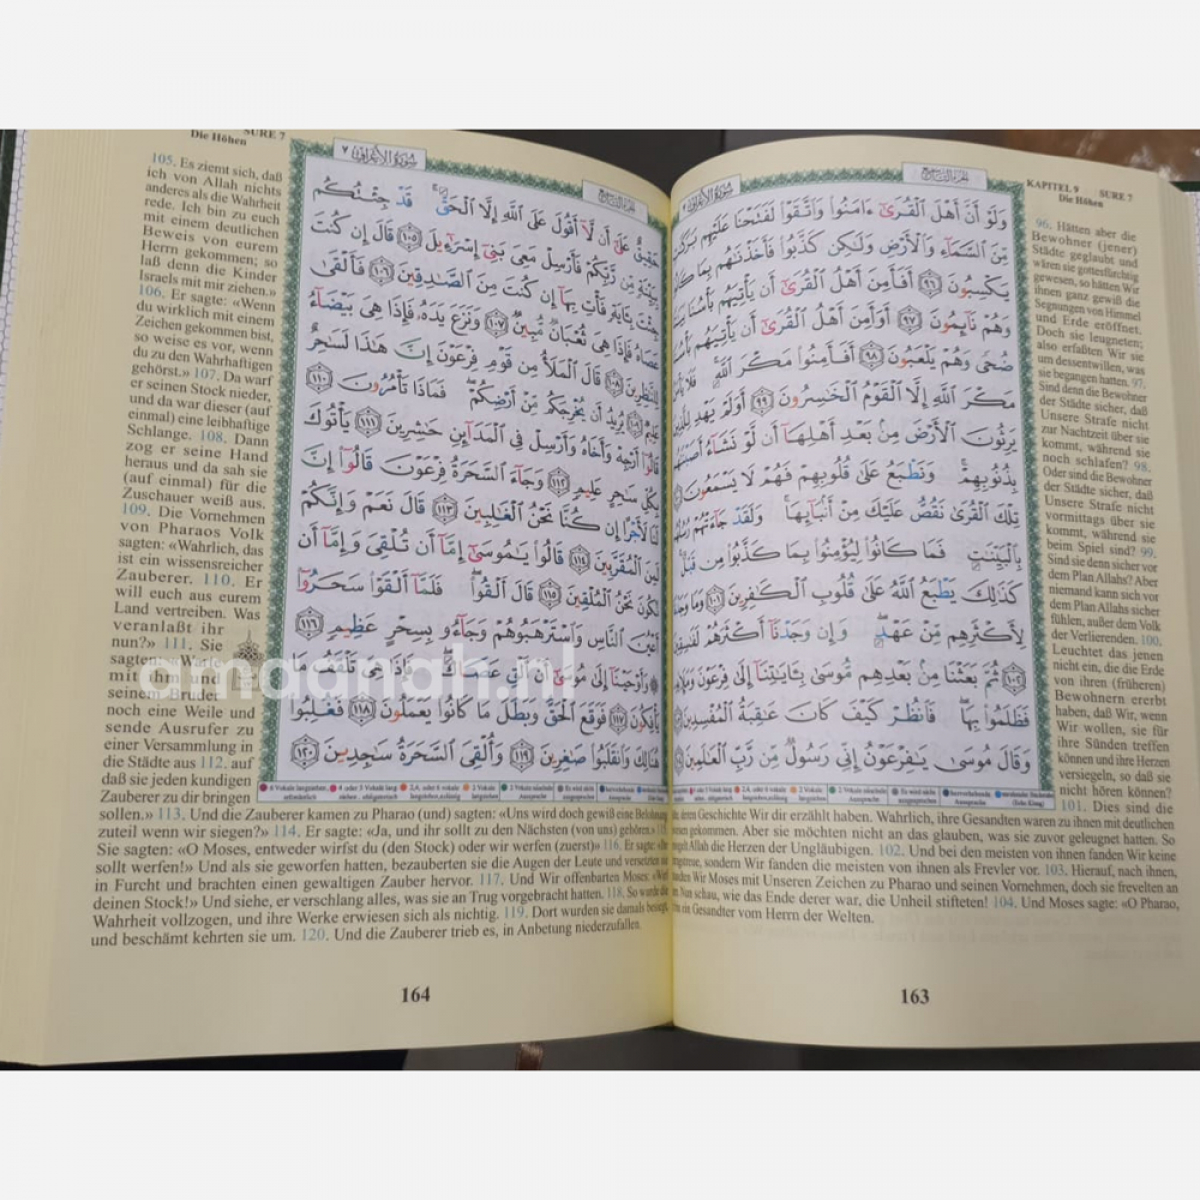 KAPITEL 9 SURE 7
Die Höhen
سُورَةُ الأَعْرَافِ ٧
وَلَوْ أَنَّ أَهْلَ ٱلْقُرَىٰٓ ءَامَنُوا۟ وَٱتَّقَوْا۟ لَفَتَحْنَا عَلَيْهِم بَرَكَٰتٍ
مِّنَ ٱلسَّمَآءِ وَٱلْأَرْضِ وَلَٰكِن كَذَّبُوا۟ فَأَخَذْنَٰهُم بِمَا
يَكْسِبُونَ ٩٦ أَفَأَمِنَ أَهْلُ ٱلْقُرَىٰٓ أَن يَأْتِيَهُم بَأْسُنَا
وَهُمْ نَآئِمُونَ ٩٧ أَوَأَمِنَ أَهْلُ ٱلْقُرَىٰٓ أَن يَأْتِيَهُم
ضُحًى وَهُمْ يَلْعَبُونَ ٩٨ أَفَأَمِنُوا۟ مَكْرَ ٱللَّهِ فَلَا
مَكْرَ ٱللَّهِ إِلَّا ٱلْقَوْمُ ٱلْخَٰسِرُونَ ٩٩ أَوَلَمْ يَهْدِ لِلَّذِينَ
يَرِثُونَ ٱلْأَرْضَ مِنۢ بَعْدِ أَهْلِهَآ أَن لَّوْ نَشَآءُ
بِذُنُوبِهِمْ وَنَطْبَعُ عَلَىٰ قُلُوبِهِمْ فَهُمْ لَا يَسْمَعُونَ
تِلْكَ ٱلْقُرَىٰ نَقُصُّ عَلَيْكَ مِنْ أَنۢبَآئِهَا وَلَقَدْ جَآءَتْهُمْ
بِٱلْبَيِّنَٰتِ فَمَا كَانُوا۟ لِيُؤْمِنُوا۟ بِمَا كَذَّبُوا۟ مِن قَبْلُ
كَذَٰلِكَ يَطْبَعُ ٱللَّهُ عَلَىٰ قُلُوبِ ٱلْكَٰفِرِينَ ١٠١ وَمَا وَجَدْنَا
لِأَكْثَرِهِم مِّنْ عَهْدٍ وَإِن وَجَدْنَآ أَكْثَرَهُمْ لَفَٰسِقِينَ
١٠٢ ثُمَّ بَعَثْنَا مِنۢ بَعْدِهِم مُّوسَىٰ بِـَٔايَٰتِنَآ إِلَىٰ فِرْعَوْنَ
فَظَلَمُوا۟ بِهَا فَٱنظُرْ كَيْفَ كَانَ عَٰقِبَةُ ٱلْمُفْسِدِينَ
وَقَالَ مُوسَىٰ يَٰفِرْعَوْنُ إِنِّى رَسُولٌ مِّن رَّبِّ ٱلْعَٰلَمِينَ
96. Hätten aber die
Bewohner (jener)
Städte geglaubt und
wären sie gottesfürchtig
gewesen, so hätten Wir
ihnen ganz gewiß die
Segnungen von Himmel
und Erde eröffnet.
Doch sie leugneten;
also erfaßten Wir sie
um dessentwillen, was
sie begangen hatten. 97.
Sind denn die Bewohner
der Städte sicher, daß
Unsere Strafe nicht
zur Nachtzeit über sie
kommt, während sie
noch schlafen? 98.
Oder sind die Bewohner
der Städte sicher, daß
Unsere Strafe nicht
vormittags über sie
kommt, während sie
beim Spiel sind? 99.
Sind sie denn sicher vor
dem Plan Allahs? Aber
niemand kann sich vor
dem Plan Allahs sicher
fühlen, außer dem Volk
der Verlierenden. 100.
Leuchtet das jenen
nicht ein, die die Erde
von ihren (früheren)
Bewohnern ererbt
haben, daß Wir, wenn
Wir wollen, sie für
ihre Sünden treffen
können und ihre Herzen
versiegeln, so daß sie
nicht hören können?
101. Dies sind die
deren Geschichte Wir dir erzählt haben. Wahrlich, ihre Gesandten waren zu ihnen mit deutlichen
gekommen. Aber sie möchten nicht an das glauben, was sie zuvor geleugnet hatten. So
Allah die Herzen der Ungläubigen. 102. Und bei den meisten von ihnen fanden Wir keine
sondern Wir fanden die meisten von ihnen als Frevler vor. 103. Hierauf, nach ihnen,
Wir Moses mit Unseren Zeichen zu Pharao und seinen Vornehmen, doch sie frevelten an
Nun schau, wie das Ende derer war, die Unheil stifteten! 104. Und Moses sagte: «O Pharao,
ein Gesandter vom Herrn der Welten.
163
SURE 7
Die Höhen
سُورَةُ الأَعْرَافِ ٧
حَقِيقٌ عَلَىٰٓ أَن لَّآ أَقُولَ عَلَى ٱللَّهِ إِلَّا ٱلْحَقَّ قَدْ جِئْتُكُم
بِبَيِّنَةٍ مِّن رَّبِّكُمْ فَأَرْسِلْ مَعِىَ بَنِىٓ إِسْرَٰٓءِيلَ ١٠٥ قَالَ إِن كُنتَ
جِئْتَ بِـَٔايَةٍ فَأْتِ بِهَآ إِن كُنتَ مِنَ ٱلصَّٰدِقِينَ ١٠٦ فَأَلْقَىٰ
عَصَاهُ فَإِذَا هِىَ ثُعْبَانٌ مُّبِينٌ ١٠٧ وَنَزَعَ يَدَهُۥ فَإِذَا هِىَ بَيْضَآءُ
لِلنَّٰظِرِينَ ١٠٨ قَالَ ٱلْمَلَأُ مِن قَوْمِ فِرْعَوْنَ إِنَّ هَٰذَا لَسَٰحِرٌ
عَلِيمٌ ١٠٩ يُرِيدُ أَن يُخْرِجَكُم مِّنْ أَرْضِكُمْ فَمَاذَا تَأْمُرُونَ ١١٠
قَالُوٓا۟ أَرْجِهْ وَأَخَاهُ وَأَرْسِلْ فِى ٱلْمَدَآئِنِ حَٰشِرِينَ ١١١ يَأْتُوكَ
بِكُلِّ سَٰحِرٍ عَلِيمٍ ١١٢ وَجَآءَ ٱلسَّحَرَةُ فِرْعَوْنَ قَالُوٓا۟ إِنَّ
لَنَا لَأَجْرًا إِن كُنَّا نَحْنُ ٱلْغَٰلِبِينَ ١١٣ قَالَ نَعَمْ وَإِنَّكُمْ
لَمِنَ ٱلْمُقَرَّبِينَ ١١٤ قَالُوا۟ يَٰمُوسَىٰٓ إِمَّآ أَن تُلْقِىَ وَإِمَّآ أَن
نَّكُونَ نَحْنُ ٱلْمُلْقِينَ ١١٥ قَالَ أَلْقُوا۟ فَلَمَّآ أَلْقَوْا۟ سَحَرُوٓا۟
أَعْيُنَ ٱلنَّاسِ وَٱسْتَرْهَبُوهُمْ وَجَآءُو بِسِحْرٍ عَظِيمٍ ١١٦
وَأَوْحَيْنَآ إِلَىٰ مُوسَىٰٓ أَنْ أَلْقِ عَصَاكَ فَإِذَا هِىَ تَلْقَفُ مَا
يَأْفِكُونَ ١١٧ فَوَقَعَ ٱلْحَقُّ وَبَطَلَ مَا كَانُوا۟ يَعْمَلُونَ ١١٨ فَغُلِبُوا۟
هُنَالِكَ وَٱنقَلَبُوا۟ صَٰغِرِينَ ١١٩ وَأُلْقِىَ ٱلسَّحَرَةُ سَٰجِدِينَ ١٢٠
105. Es ziemt sich, daß
ich von Allah nichts
anderes als die Wahrheit
rede. Ich bin zu euch
mit einem deutlichen
Beweis von eurem
Herrn gekommen; so
laß denn die Kinder
Israels mit mir ziehen.»
106. Er sagte: «Wenn
du wirklich mit einem
Zeichen gekommen bist,
so weise es vor, wenn
du zu den Wahrhaftigen
gehörst.» 107. Da warf
er seinen Stock nieder,
und da war dieser (auf
einmal) eine leibhaftige
Schlange. 108. Dann
zog er seine Hand
heraus und da sah sie
(auf einmal) für die
Zuschauer weiß aus.
109. Die Vornehmen
von Pharaos Volk
sagten: «Wahrlich, das
ist ein wissensreicher
Zauberer. 110. Er
will euch aus eurem
Land vertreiben. Was
veranlaßt ihr
nun?» 111. Sie
sagten: «Warte
mit ihm und
seinem Bruder
noch eine Weile und
sende Ausrufer zu
einer Versammlung in
die Städte aus 112. auf
daß sie jeden kundigen
Zauberer zu dir bringen
sollen.» 113. Und die Zauberer kamen zu Pharao (und) sagten: «Uns wird doch gewiß eine Belohnung
zuteil wenn wir siegen?» 114. Er sagte: «Ja, und ihr sollt zu den Nächsten (von uns) gehören.»
Sie sagten: «O Moses, entweder wirfst du (den Stock) oder wir werfen (zuerst)» 116. Er sagte:
sollt werfen!» Und als sie geworfen hatten, bezauberten sie die Augen der Leute und versetzten sie
in Furcht und brachten einen gewaltigen Zauber hervor. 117. Und Wir offenbarten Moses: «Wirf
deinen Stock!» Und siehe, er verschlang alles, was sie an Trug vorgebracht hatten. 118. So wurde die
Wahrheit vollzogen, und ihre Werke erwiesen sich als nichtig. 119. Dort wurden sie damals besiegt,
und beschämt kehrten sie um. 120. Und die Zauberer trieb es, in Anbetung niederzufallen.
164
amaanah.nl